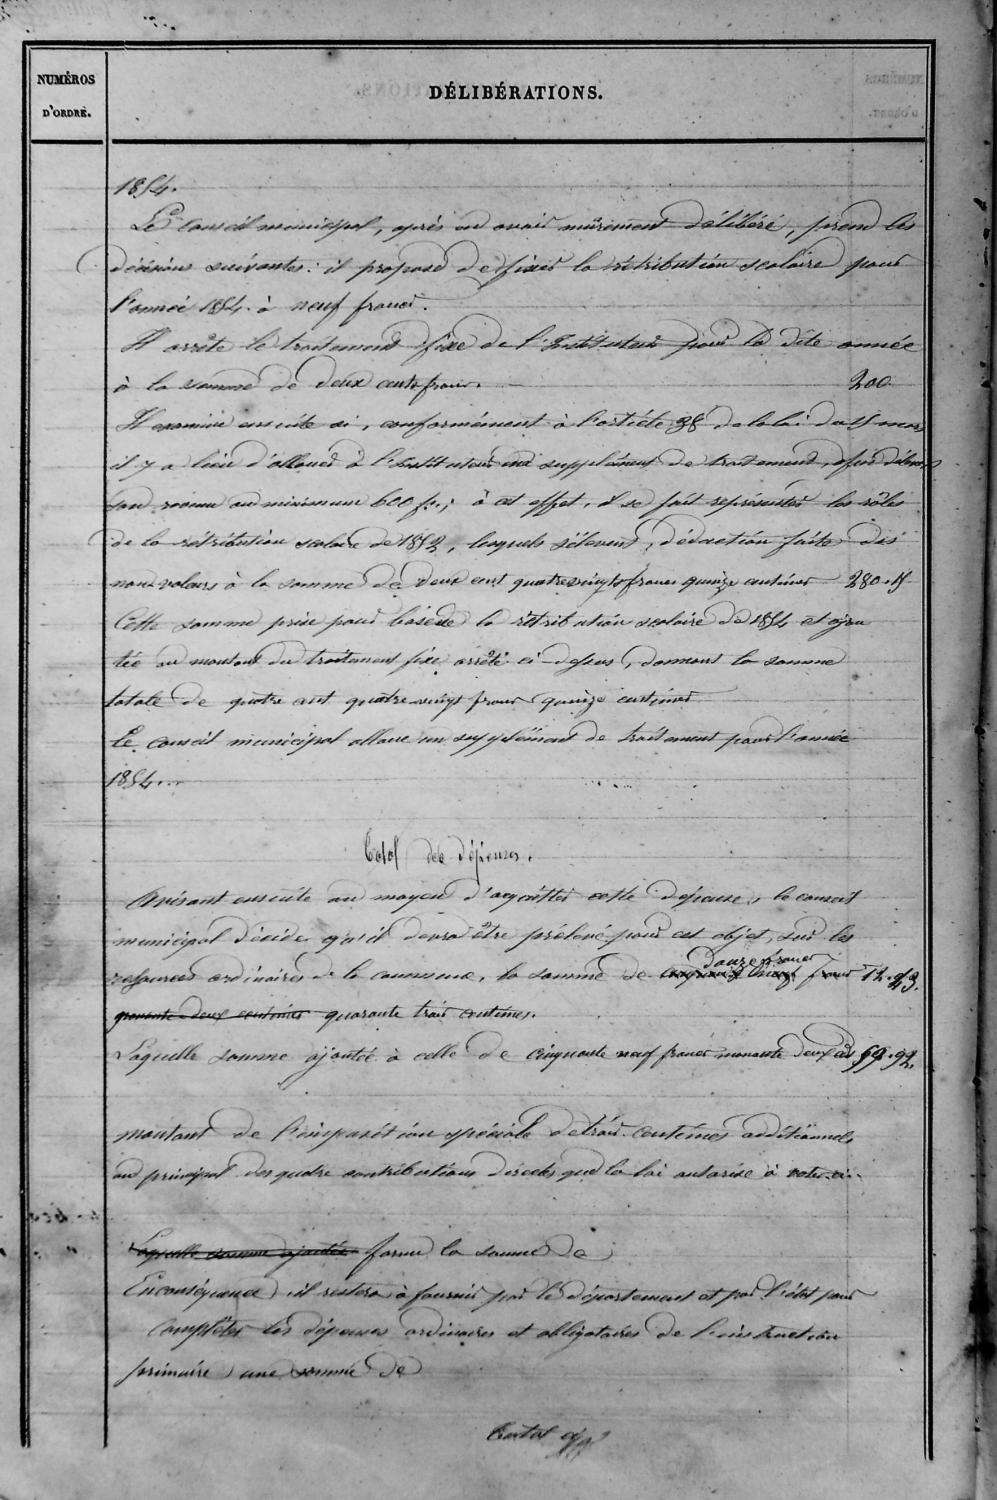 NUMÉROS
D'ORDRE.
DÉLIBÉRATIONS.
1854.
Le Conseil municipal, après en avoir mûrement délibéré, prend les
décisions suivantes : il propose de fixer la rétribution scolaire pour
l'année 1854. à neuf francs.
Il arrête le traitement fixe de l'Instituteur pour la dite année
à la somme de deux cents francs. 200
Il examine ensuite si, conformément à l'article 38 de la loi du 15 mars
il y a lieu d'allouer à l'Instituteur un supplément de traitement, afin d'élever
son revenu au minimum 600 f. ; à cet effet, il se fait représenter les rôles
de la rétribution scolaire de 1852, lesquels s'élèvent, déduction faite des
non valeurs à la somme de deux cent quatrevingts francs quinze centimes 280.15
Cette somme prise pour base de la rétribution scolaire de 1854 et ajou
tée au montant du traitement fixe arrêté ci-dessus, donnent la somme
totale de quatre cent quatre-vingt francs quinze centimes
Le conseil municipal alloue un supplément de traitement pour l'année
1854...
Total des dépenses.
Avisant ensuite au moyen d'acquitter cette dépense, le conseil
municipal décide qu'il devra être prélevé pour cet objet, sur les
douze francs
ressources ordinaires de la commune, la somme de francs 12.43.
quarante trois centimes.
Laquelle somme ajoutée à celle de cinquante neuf francs nonante deux 59.92.
montant de l'imposition spéciale de trois centimes additionnels
au principal des quatre contributions directes que la loi autorise à voter ci.
Laquelle somme ajoutée forme la somme de
En conséquence, il restera à fournir par le département et par l'état pour
compléter les dépenses ordinaires et obligatoires de l'instruction
primaire une somme de
Total